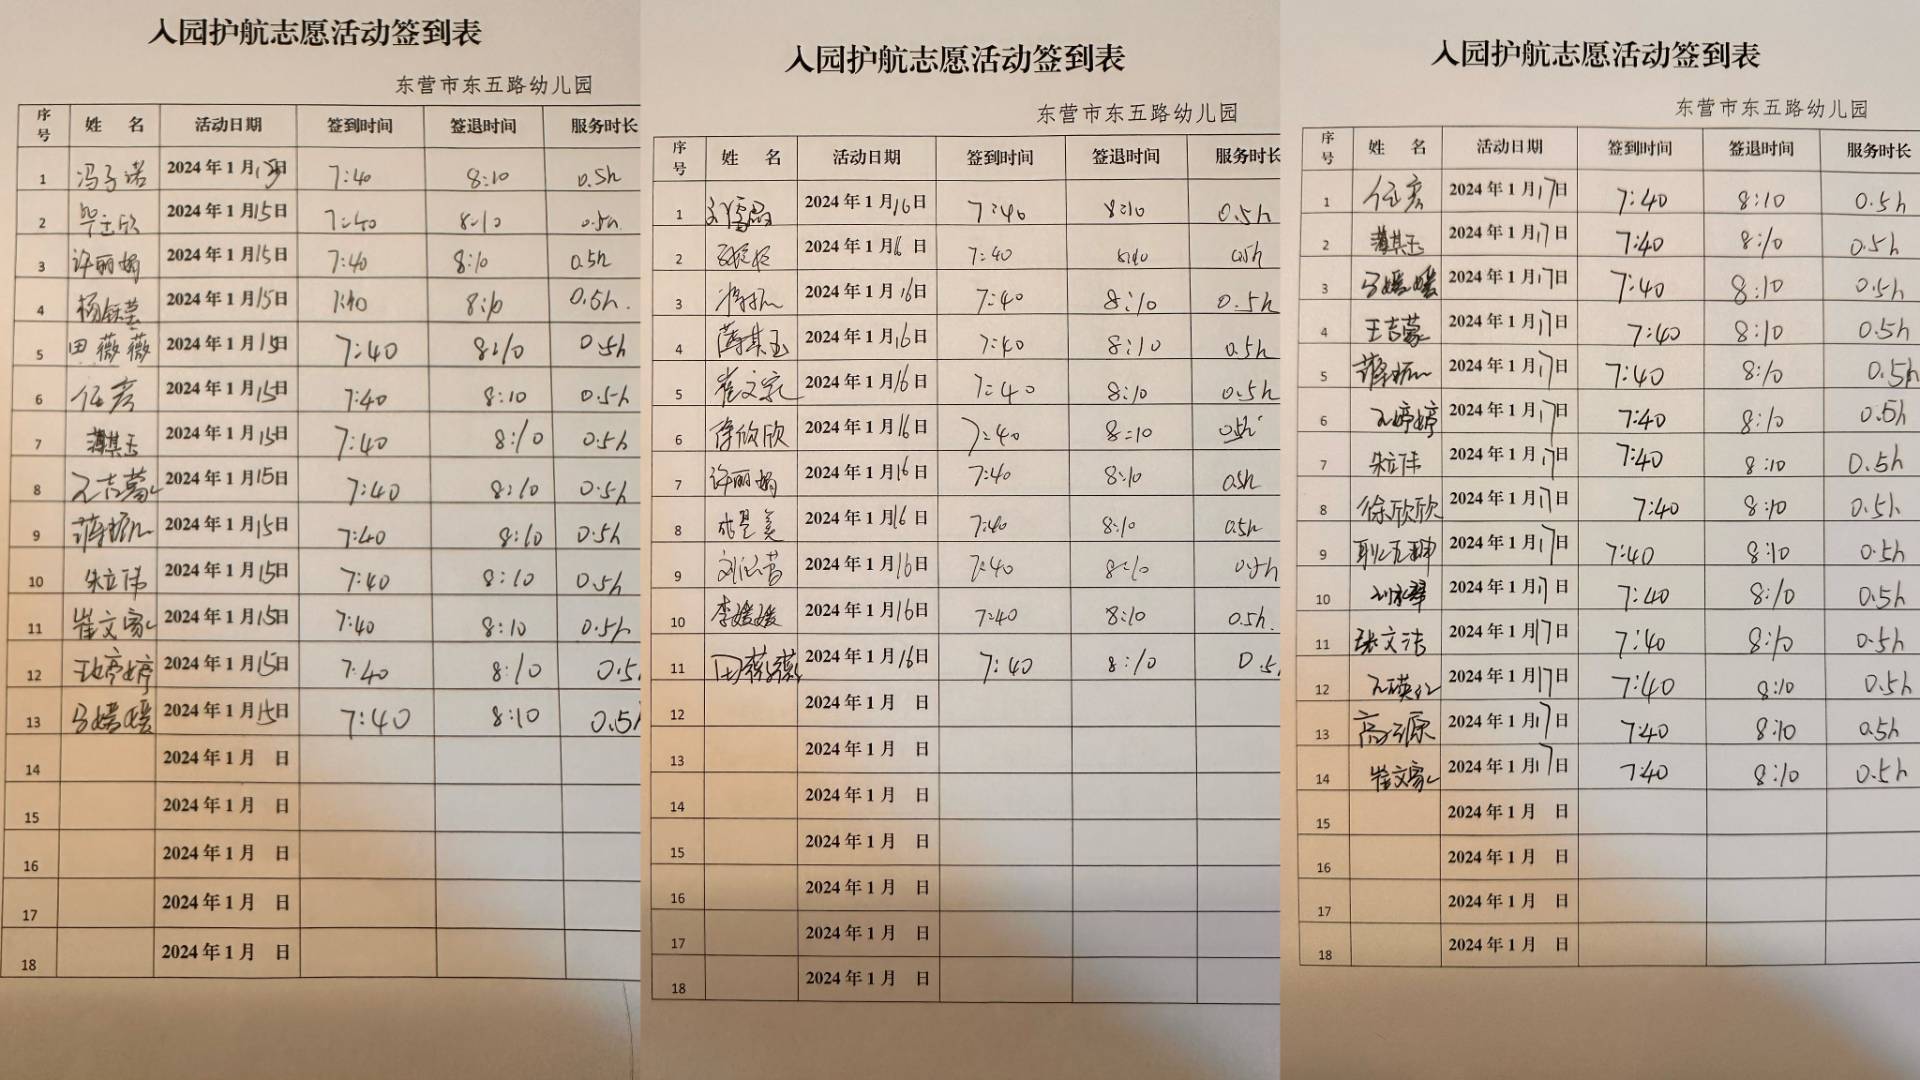 入园护航志愿活动签到表
东营市东五路幼儿园
序号 姓 名 活动日期 签到时间 签退时间 服务时长
1 冯子诺 2024年1月15日 7:40 8:10 0.5h
2 2024年1月15日 7:40 8:10 0.5h
3 许丽娟 2024年1月15日 7:40 8:10 0.5h
4 杨钰莹 2024年1月15日 7:40 8:10 0.5h.
5 田薇薇 2024年1月15日 7:40 8:10 0.5h
6 任彦 2024年1月15日 7:40 8:10 0.5h
7 薄其玉 2024年1月15日 7:40 8:10 0.5h
8 王吉蒙 2024年1月15日 7:40 8:10 0.5h
9 2024年1月15日 7:40 8:10 0.5h
10 朱立伟 2024年1月15日 7:40 8:10 0.5h
11 崔文家 2024年1月15日 7:40 8:10 0.5h
12 王婷婷 2024年1月15日 7:40 8:10 0.5
13 马媛媛 2024年1月15日 7:40 8:10 0.5h
14 2024年1月 日
15 2024年1月 日
16 2024年1月 日
17 2024年1月 日
18 2024年1月 日
入园护航志愿活动签到表
东营市东五路幼儿园
序号 姓 名 活动日期 签到时间 签退时间 服务时长
1 2024年1月16日 7:40 8:10 0.5h
2 2024年1月16日 7:40 8:10 0.5h
3 2024年1月16日 7:40 8:10 0.5h
4 薄其玉 2024年1月16日 7:40 8:10 0.5h
5 崔文家 2024年1月16日 7:40 8:10 0.5h
6 徐欣欣 2024年1月16日 7:40 8:10 0.5h
7 许丽娟 2024年1月16日 7:40 8:10 0.5h
8 2024年1月16日 7:40 8:10 0.5h
9 2024年1月16日 7:40 8:10 0.5h
10 李媛媛 2024年1月16日 7:40 8:10 0.5h.
11 田薇薇 2024年1月16日 7:40 8:10 0.5
12 2024年1月 日
13 2024年1月 日
14 2024年1月 日
15 2024年1月 日
16 2024年1月 日
17 2024年1月 日
18 2024年1月 日
入园护航志愿活动签到表
东营市东五路幼儿园
序号 姓 名 活动日期 签到时间 签退时间 服务时长
1 任彦 2024年1月17日 7:40 8:10 0.5h
2 薄其玉 2024年1月17日 7:40 8:10 0.5h
3 马媛媛 2024年1月17日 7:40 8:10 0.5h
4 王吉蒙 2024年1月17日 7:40 8:10 0.5h
5 2024年1月17日 7:40 8:10 0.5h
6 王婷婷 2024年1月17日 7:40 8:10 0.5h
7 朱立伟 2024年1月17日 7:40 8:10 0.5h
8 徐欣欣 2024年1月17日 7:40 8:10 0.5h
9 2024年1月17日 7:40 8:10 0.5h
10 2024年1月17日 7:40 8:10 0.5h
11 张文洁 2024年1月17日 7:40 8:10 0.5h
12 2024年1月17日 7:40 8:10 0.5h
13 高源 2024年1月17日 7:40 8:10 0.5h
14 崔文家 2024年1月17日 7:40 8:10 0.5h
15 2024年1月 日
16 2024年1月 日
17 2024年1月 日
18 2024年1月 日